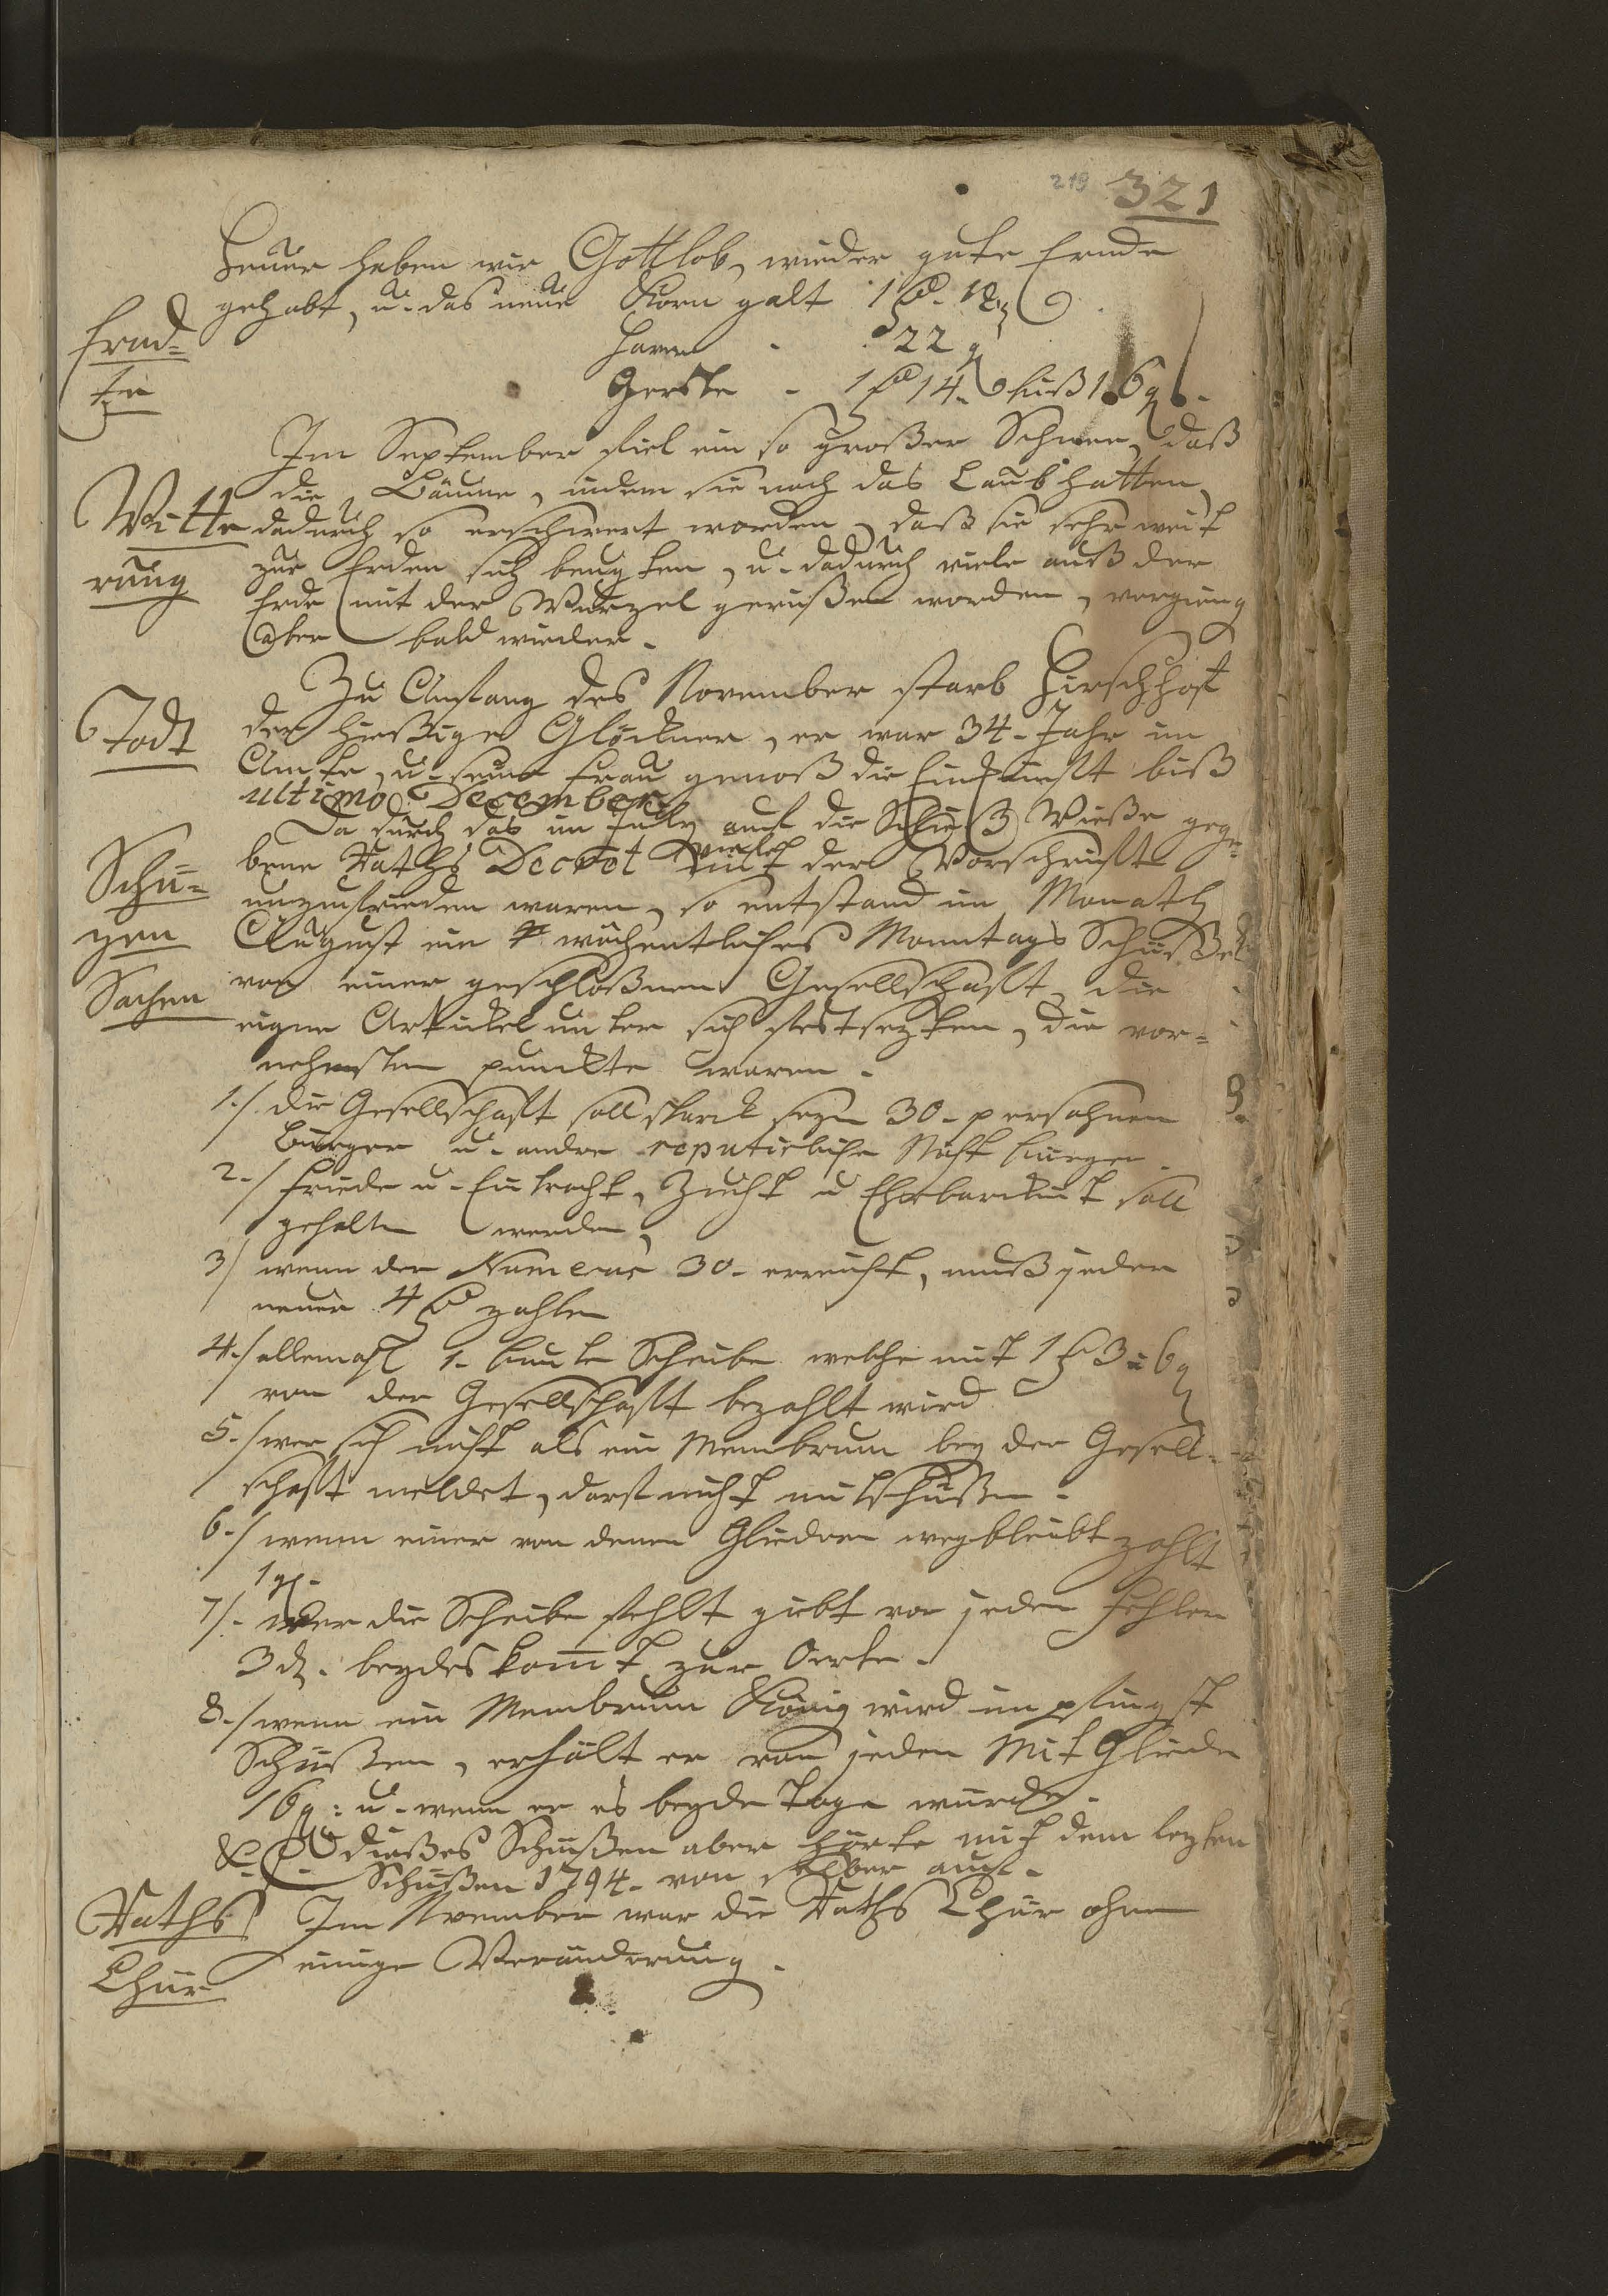 219 321
Heuer haben wir Gottlob, wieder gute Ernde
gehabt, u. das neue Korn galt 1 rth. 12 g
Ernd=
te
Haver - 22 g
Gerste - 1 rth 14. biß 16 g.
Im September fiel ein so großer Schnee, daß
die Bäume, indem sie noch das Laub hatten,
Witte
rung
dadurch so erschwert worden, daß sie sehr weit
zur Erden sich beugten, u. dadurch viele auß der
Erde mit der Wurzel gerißen worden, vergieng
aber bald wieder.
Todt
Zu Anfang des November starb Hirschhoff
der hießige Glöckner, er war 34. Jahr im
Amte, u. seine Frau genoß die Einkünfft biß
ultimo December.
Schü=
zen
Sachen
Da durch das im July auf die Schieß Wieße gege=
bene Raths Decret viele mit der Vorschrifft
unzufrieden waren, so entstand im Monath
August ein wöchentliches Monntags Schüßen
von einer geschloßnen Gesellschafft, die
eigne Artickel unter sich festsezten, die vor=
nehmsten puncte waren.
1./ die Gesellschafft soll starck seyn 30. persohnen
Bürger u. andre reputirliche Nicht bürger.
2./ Friede u. Eintracht, Zucht u Ehrbarckeit soll
gehalten werden,
3/ wenn der Numerus 30. erreicht, muß jeder
neuer 4 rth zahlen
4./ allemahl 1. bunte Scheibe welche mit 1 rth 3 = 6 g
von der Gesellschafft bezahlt wird
5./ wer sich nicht als ein Membrum bey der Gesell=
schafft meldet, darf nicht mitschüßen.
6./ wenn einer von denen Gliedern wegbleibt zahlt
1 g.
7/. wer die Scheibe fehlt giebt von jeden Fehler
3 d. beydes komt zur Oerte.
8./ wenn ein Membrum König wird im pfingst
Schüßen, erhält er von jeden Mit Gliede
16 g: u. wenn er es beyde Tage würde.
dießes Schüßen aber hörte mit dem lezten
Schüßen 1794. von selber auf.
Raths
Chür
Im November war die Raths Chür ohne
einige Veränderung.